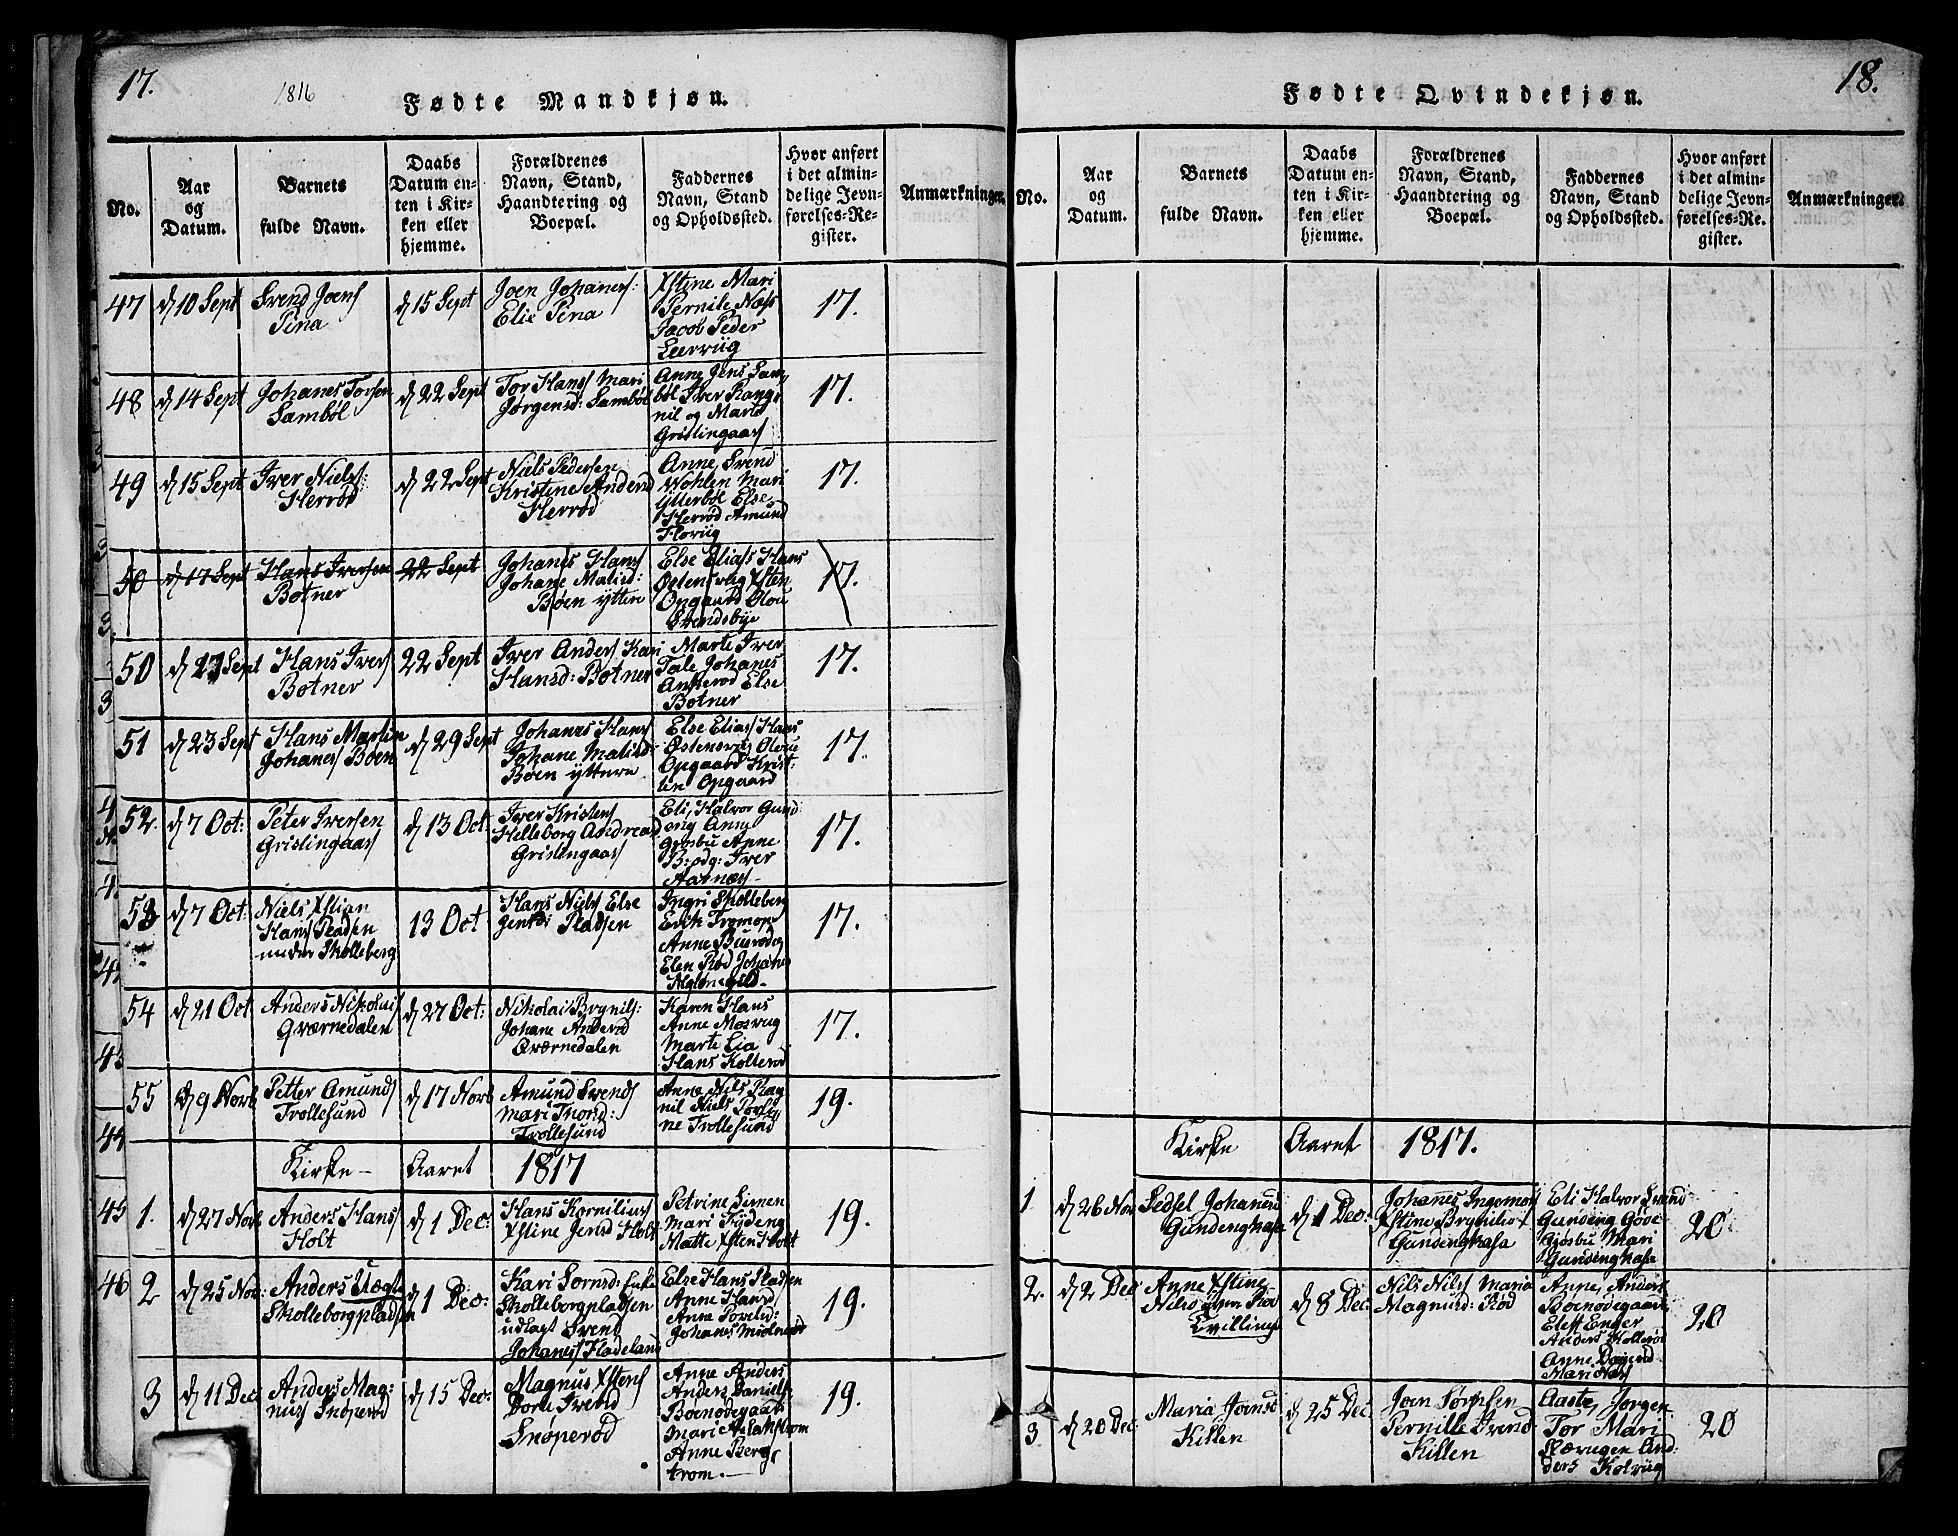 17.
1816
Fødte Mandkjøn.
No.
Aar
og
Datum.
Barnets
fulde Navn.
Daabs
Datum en-
ten i Kir-
ken eller
hjemme.
Forældrenes
Navn, Stand,
Haandtering og
Boepæl.
Faddernes
Navn, Stand
og Opholdssted.
Hvor anført
i det almin-
delige Jevn-
førelses-Re-
gister.
Anmærkninger.
47
d 10 Sept
Svend Joens
Pina
d 15 Sept
Joen Johanes:
Elie Pina
Xstine Mari
Pernile Næss
Jacob Peder
Leerviig
17.
48
d 14 Sept
Johanes Torsen
Sambøl
d 22 Sept
Tor Hans Mari
Jørgensd: Sambøl
Anne Jens Sam
bøl Iver Rangr
nil og Marte
Grislingaas
17.
49
d 15 Sept
Iver Niels:
Herrød
d 22 Sept
Niels Pedersen
Kristine Andersd
Herrød
Anne Svend
Wohlen Mari
Ytterbøl Else
Herrød Amund
Floviig
17.
50
d 17 Sept
Hans Iversen
Botner
22 Sept
Johanes Hans
Johane Matisd:
Bøen ytten
Else Elias Hans
Østensvig Xsten
Opgaard Olou
Svendsbye
17.
50
d 17 Sept
Hans Ivers
Botner
22 Sept
Iver Anders Kari
Hansd: Botner
Marte Iver
Tale Johanes
Ankerød Else
Botner
17.
51
d 23 Sept
Hans Martin
Johanes Bøen
d 29 Sept
Johanes Hans
Johane Matisd:
Bøen yttere
Else Elias Hans
Østensvig Oloue
Opgaard Krist-
ten Opgaard
17.
52.
d 7 Oct:
Peter Iversen
Grislingaas
d 13 Oct:
Iver Kristens
Helleborg Andreasd
Grislingaas
Eli, Halvor Gund
eng Anne
Gjøsbu Anne
B:ødg: Iver
Aarnæs
17.
53
d 7 Oct:
Niels Xstian
Hans Pladsen
under Skolleberg
13 Oct
Hans Niels Else
Jensd: Pladsen
Ingri Skolleberg
Erik Tromop
Anne Buerødeg
Elen Rød Johanes
17.
54
d 21 Oct
Anders Nikolais
Qværnedalen
d 27 Oct:
Nikolai Brynils:
Johane Andersd
Qværnedalen
Karen Hans
Anne Mosvug
Marte Lia
Hans Kolterød
17.
55
d 9 Novb
Petter Amunds
Trollesund
d 17 Novb
Amund Svends
Mari Trond:
Trollesund
Anne Nils Rag
nil Niels Torle
ne Trollesund
19.
Kirke-
Aaret
1817
1.
d 27 Novb
Anders Hans
Holt
d 1 Dec:
Hans Kornilius
Xstine Jensd Holt
Petrine Simen
Mari Fjdeng
Matte Xsten Holt
19.
2
d 25 Nov:
Anders Uægte
Skolleborgpladsen
d 1 Dec:
Kari Sornsd: Enke
Skolleborgpladsen
udlagt Svend
Johanes Fladeland
Else Hans Pladsen
Anne Hansd
Anne Torelid:
Johanes Miolnerød
19.
3
d 11 Dec
Anders Mag:
nus Snoperød
d 15 Dec:
Magnus Xstens
Dorte Ivensd
Snoperød
Anne Anders
Anders Daniels:
Boenødegaar
Mari Aslakstrom
Anne Berg,
trom.
19.
18.
Fødte Qvindekjøn.
No.
Aar
og
Datum.
Barnets
fulde Navn.
Daabs
Datum en-
ten i Kir-
ken eller
hjemme.
Forældrenes
Navn, Stand,
Haandtering og
Boepæl.
Faddernes
Navn, Stand
og Opholdssted.
Hvor anført
i det almin-
delige Jevn-
førelses-Re-
gister.
Anmærkninger.
Kirke
Aaret
1817.
1
d 26 Nov
Sedsel Johanesd
Gundenghasa
d 1 Dec:
Johanes Ingemors
Xstine Brynilsd
Gundenghasa
Eli Halvor Svend
Gundeng Gove
Gjøsbu Mari
Gundenghasa
20
2.
d 2 Dec
Anne Xstine
Nilsd Rød
Tvilling
d 8 Dec:
Nils Nils Maria
Magnusd: Rød
Anne, Anders
Boenødegaard
Eleff Enger
Anders Kollerød
Anne Dagend
Mari Næs
20
3
d 20 Dec
Maria Joensd
Killen
d 25 Dec:
Joen Sørnsen
Pernille Svend
Killen
Aaste, Jorgen
Tor Mari
Slærugen And:
ders Kolviig
20